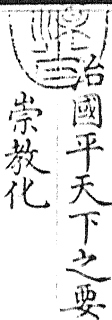 治國平天下之要
崇教化